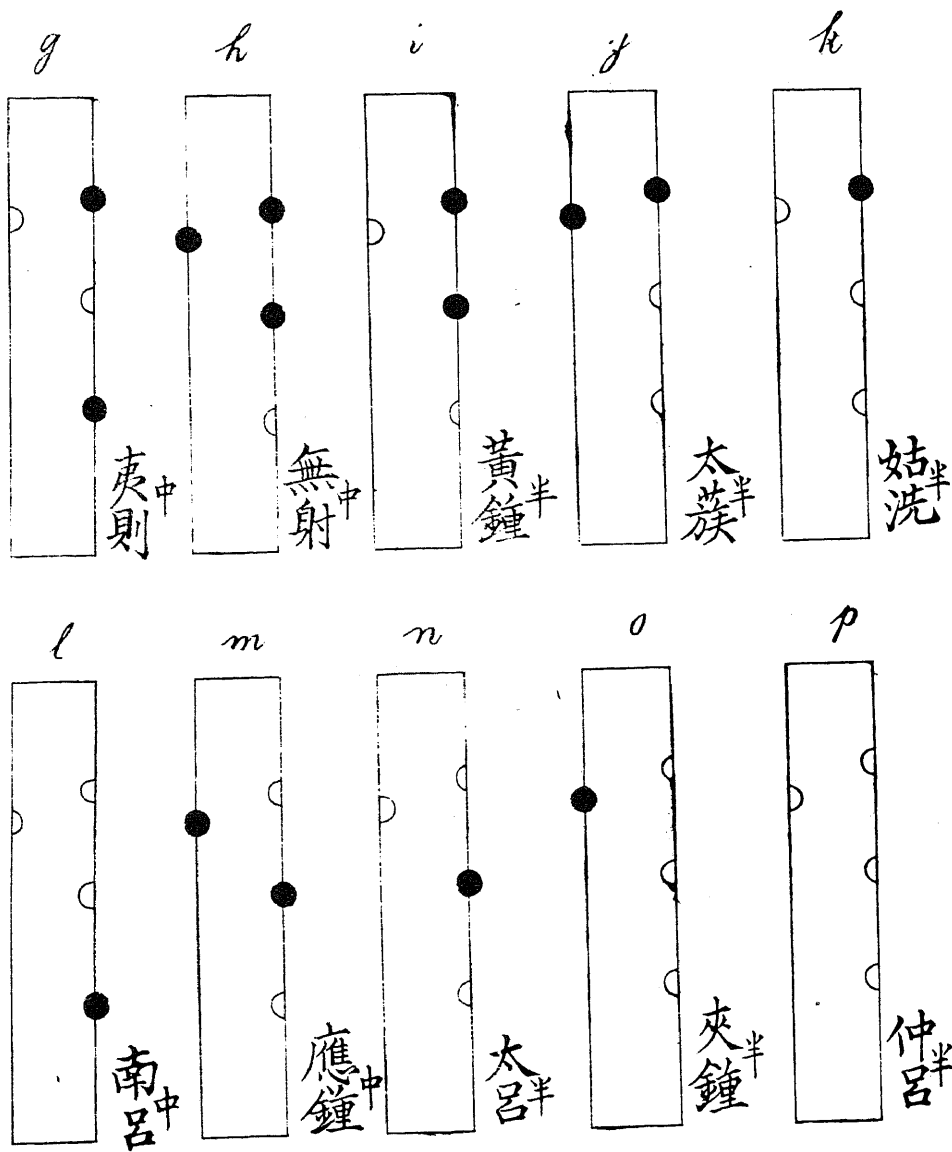 g h i j k
夷則中 無射中 黃鍾半 太蔟半 姑洗半
l m n o p
南呂中 應鍾中 太呂半 夾鍾半 仲呂半